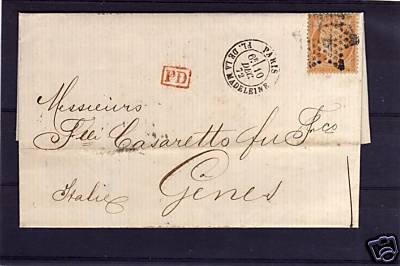 PARIS
6E / 10
DEC
72
PL. DE LA MADELEINE
PD
Messieurs
Flli Casaretto fu Fco
Italie Gênes